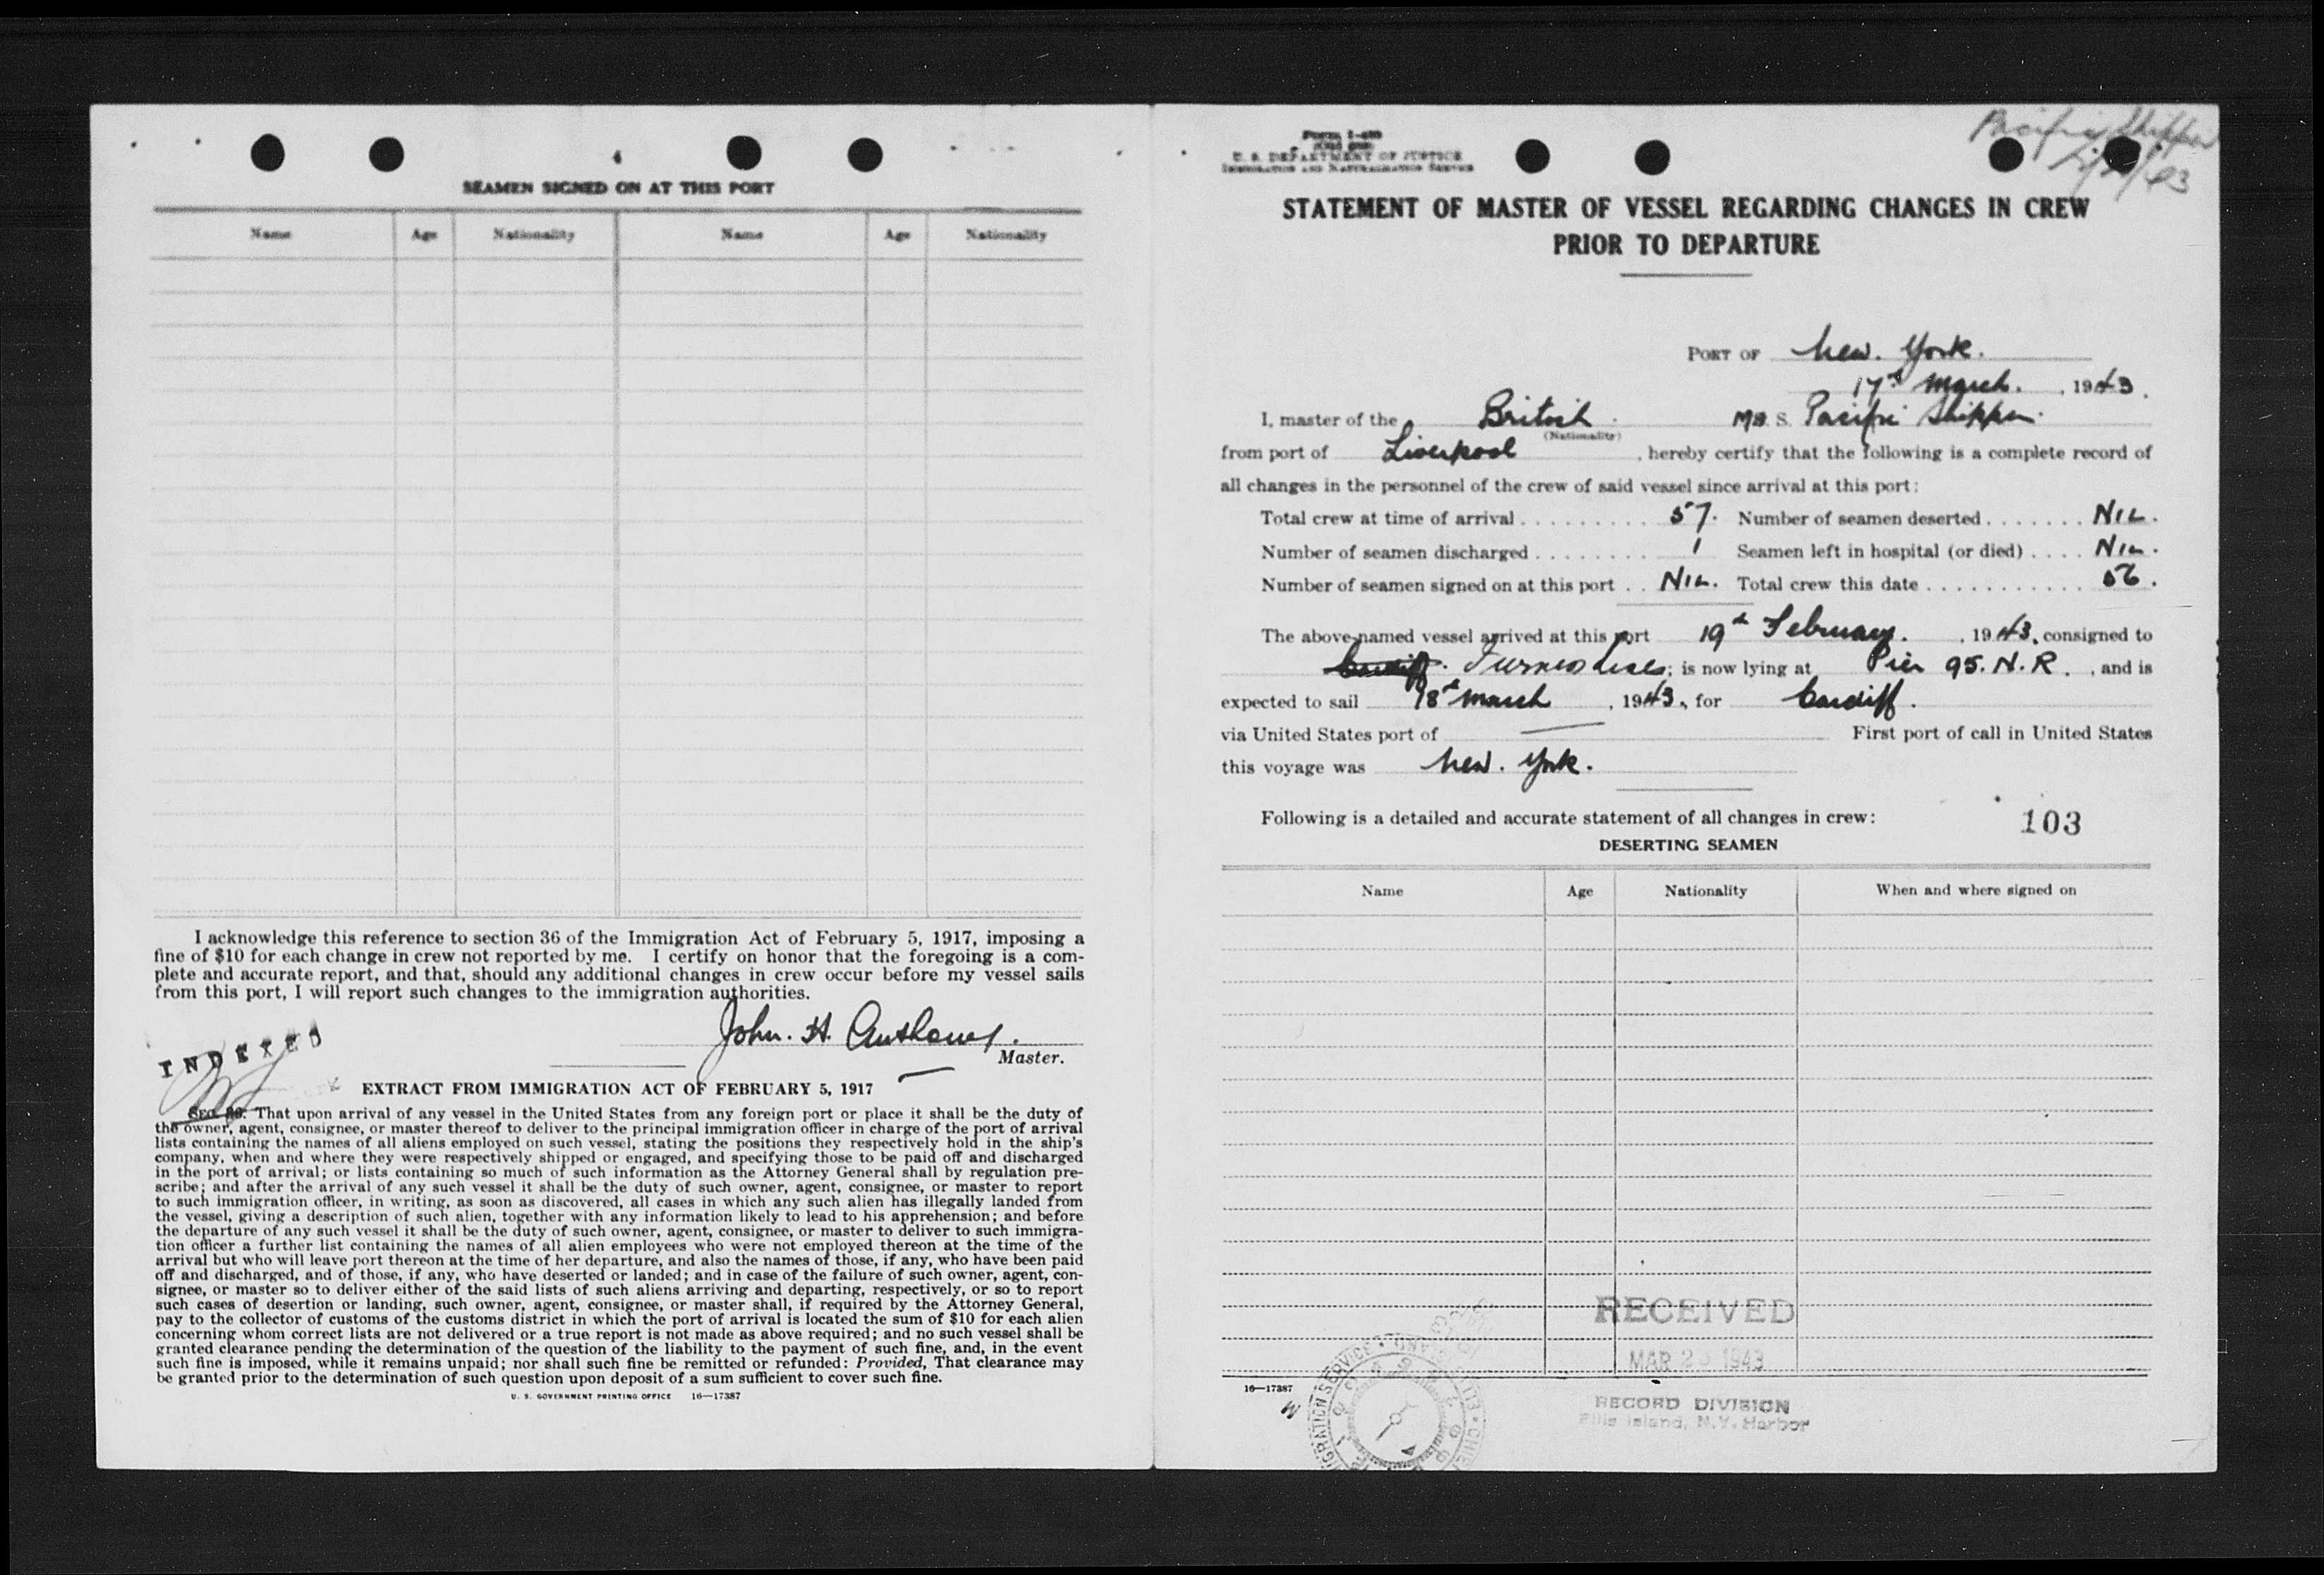 SEAMEN SIGNED ON AT THIS PORT
Name Age Nationality Name Age Nationality
I acknowledge this reference to section 36 of the Immigration Act of February 5, 1917, imposing a
fine of $10 for each change in crew not reported by me. I certify on honor that the foregoing is a com-
plete and accurate report, and that, should any additional changes in crew occur before my vessel sails
from this port, I will report such changes to the immigration authorities.
John. H. Anthony.
Master.
INDEXED
EXTRACT FROM IMMIGRATION ACT OF FEBRUARY 5, 1917
SEC. 36. That upon arrival of any vessel in the United States from any foreign port or place it shall be the duty of
the owner, agent, consignee, or master thereof to deliver to the principal immigration officer in charge of the port of arrival
lists containing the names of all aliens employed on such vessel, stating the positions they respectively hold in the ship's
company, when and where they were respectively shipped or engaged, and specifying those to be paid off and discharged
in the port of arrival; or lists containing so much of such information as the Attorney General shall by regulation pre-
scribe; and after the arrival of any such vessel it shall be the duty of such owner, agent, consignee, or master to report
to such immigration officer, in writing, as soon as discovered, all cases in which any such alien has illegally landed from
the vessel, giving a description of such alien, together with any information likely to lead to his apprehension; and before
the departure of any such vessel it shall be the duty of such owner, agent, consignee, or master to deliver to such immigra-
tion officer a further list containing the names of all alien employees who were not employed thereon at the time of the
arrival but who will leave port thereon at the time of her departure, and also the names of those, if any, who have been paid
off and discharged, and of those, if any, who have deserted or landed; and in case of the failure of such owner, agent, con-
signee, or master so to deliver either of the said lists of such aliens arriving and departing, respectively, or so to report
such cases of desertion or landing, such owner, agent, consignee, or master shall, if required by the Attorney General,
pay to the collector of customs of the customs district in which the port of arrival is located the sum of $10 for each alien
concerning whom correct lists are not delivered or a true report is not made as above required; and no such vessel shall be
granted clearance pending the determination of the question of the liability to the payment of such fine, and, in the event
such fine is imposed, while it remains unpaid; nor shall such fine be remitted or refunded: Provided, That clearance may
be granted prior to the determination of such question upon deposit of a sum sufficient to cover such fine.
U. S. GOVERNMENT PRINTING OFFICE 16—17387
Pacific Shipper
U. S. DEPARTMENT OF JUSTICE
IMMIGRATION AND NATURALIZATION SERVICE
STATEMENT OF MASTER OF VESSEL REGARDING CHANGES IN CREW
PRIOR TO DEPARTURE
PORT OF New. York.
17th March. , 1943.
I, master of the British M. S. Pacific Shipper.
(Nationality)
from port of Liverpool , hereby certify that the following is a complete record of
all changes in the personnel of the crew of said vessel since arrival at this port:
Total crew at time of arrival 57. Number of seamen deserted NIL.
Number of seamen discharged 1 Seamen left in hospital (or died) NIL.
Number of seamen signed on at this port NIL. Total crew this date 56.
The above-named vessel arrived at this port 19th February. , 1943, consigned to
Cardiff. Furness Lines; is now lying at Pier 95. N. R. , and is
expected to sail 18th March , 1943, for Cardiff.
via United States port of — First port of call in United States
this voyage was New. York.
Following is a detailed and accurate statement of all changes in crew: 103
DESERTING SEAMEN
Name Age Nationality When and where signed on
RECEIVED
MAR 2 1943
16—17387
RECORD DIVISION
Ellis Island, N.Y. Harbor